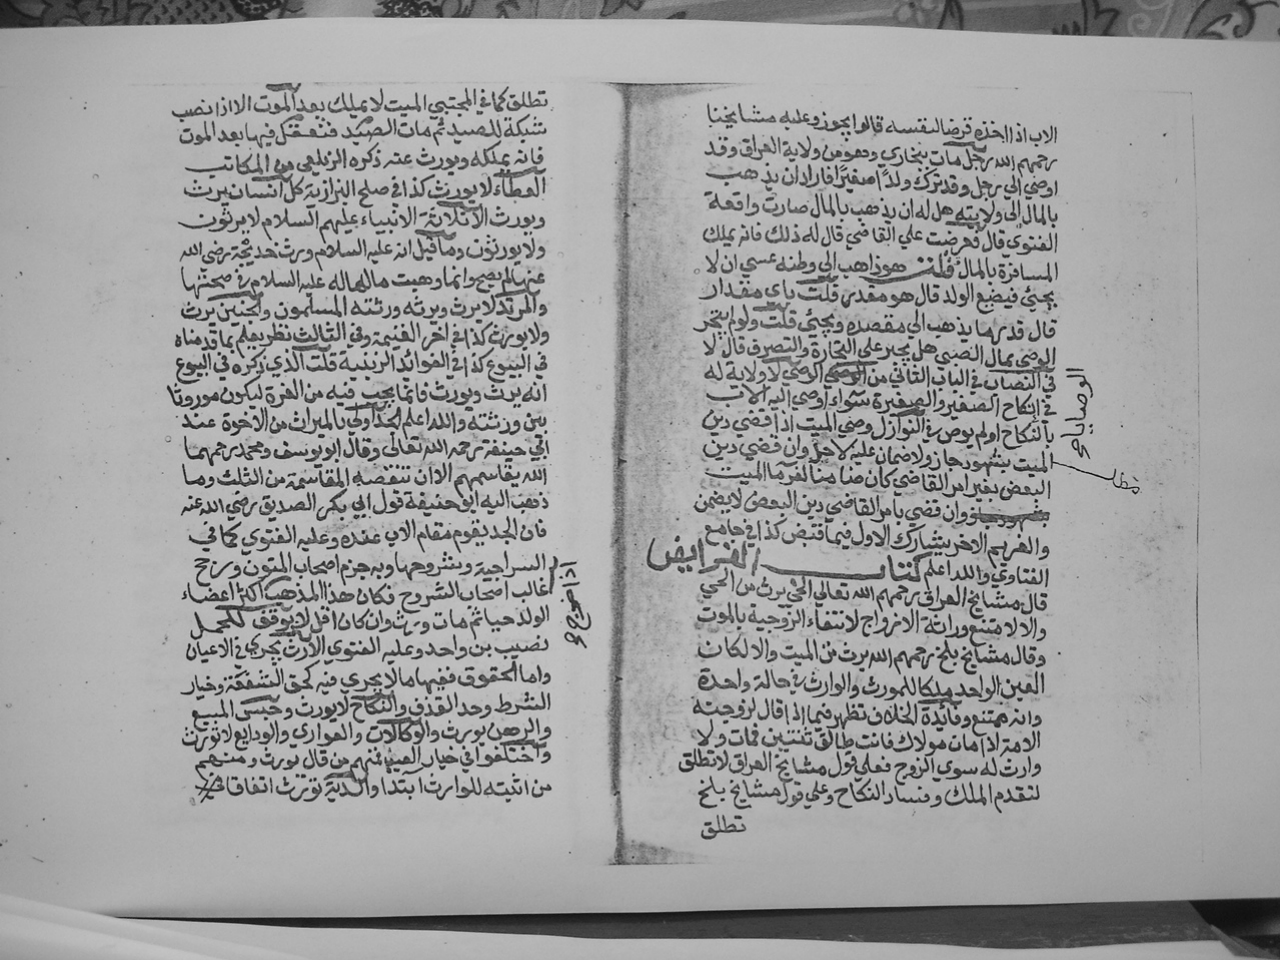 الاب اذا اخذه قرضا لنفسه قالوا يجوز وعليه مشايخنا
رحمهم الله رجل مات ببخارى وهو من ولاية العراق وقد
اوصي الي رجل وقد ترك ولدا صغيرا فاراد ان يذهب
بالمال الى ولايته هل له ان يذهب بالمال صارت واقعة
الفتوي قال فعرضت علي القاضي قال له ذلك فانه يملك
المسافرة بالمال قلت هو ذاهب الي وطنه عسي ان لا
يجئي فيضيع الولد قال هو مقدر قلت باي مقدار
قال قدر ما يذهب الي مقصده ويجئي قلت ولو لم يتجر
الوصي بمال الصبي هل يجبر علي التجارة والتصرف قال لا
في النصاب في الباب الثاني من الوصي الوصي لا ولاية له
في انكاح الصغير والصغيرة سواء اوصي اليه الاب
بالنكاح او لم يوص في النوازل وصي الميت اذا قضي دين
الميت بشهود جاز ولا ضمان عليه لاحد وان قضي دين
البعض بغير امر القاضي كان ضامنا لغرما الميت
وان قضي بامر القاضي دين البعض لا يضمن
والغريم الاخر يشارك الاول فيما قبض كذا في جامع
الفتاوي والله اعلم كتاب الفرايض
قال مشايخ العراق رحمهم الله تعالي الحي يرث من الحي
والا لامتنع وراثة الازواج لانتفاء الزوجية بالموت
وقال مشايخ بلخ رحمهم الله يرث من الميت والا لكان
العين الواحد ملكا للمورث والوارث في حالة واحدة
وانه ممتنع وفائدة الخلاف تظهر فيما اذا قال لزوجته
الامة اذا مات مولاك فانت طالق ثنتين فمات ولا
وارث له سوي الزوج فعلي قول مشايخ العراق لا تطلق
لتقدم الملك وفساد النكاح وعلي قول مشايخ بلخ
تطلق
الوصايا
تطلق كما في المجتبي الميت لا يملك بعد الموت الا اذا نصب
شبكة للصيد ثم مات الصيد فتعقل فيها بعد الموت
فانه يملكه ويورث عنه ذكره الزيلعي من المكاتب
العطاء لا يورث كذا في صلح البزازية كل انسان يرث
ويورث الا ثلاثة الانبياء عليهم السلام لا يرثون
ولا يورثون وما قيل انه عليه السلام ورث خديجة رضي الله
عنها لم يصح وانما وهبت مالها له عليه السلام في صحتها
والمرتد لا يرث ويرثه ورثته المسلمون والجنين يرث
ولا يورث كذا في اخر الغنيمة وفي الثالث نظر يعلم بما قدمناه
في البيوع كذا في الفوائد الزينية قلت الذي ذكره في البيوع
انه يرث ويورث فانما يجب فيه من الغرة ليكون موروثا
بين ورثته والله اعلم الجد اولي بالميراث من الاخوة عند
ابي حنيفة رحمه الله تعالى وقال ابو يوسف ومحمد رحمهما
الله يقاسمهم الا ان تنقصه المقاسمة من الثلث وما
ذهب اليه ابو حنيفة قول ابي بكر الصديق رضي الله عنه
فان الجد يقوم مقام الاب عنده وعليه الفتوي كما في
السراجية وشروحها وبه جزم اصحاب المتون ورجح
غالب اصحاب الشروح فكان هذا المذهب اكثر اعضاء
الولد حيا ثم مات ورث وان كان اقل لا يوقف للحمل
نصيب بن واحد وعليه الفتوي الارث يجري في الاعيان
واما الحقوق ففيها ما لا يجري فيه كحق الشفعة وخيار
الشرط وحد القذف والنكاح لا يورث وحبس المبيع
والرهن يورث والوكالات والعواري والودايع لا تورث
واختلفوا في خيار العيب فمنهم من قال يورث ومنهم
من اثبته للوارث ابتدا والدية تورث اتفاقا